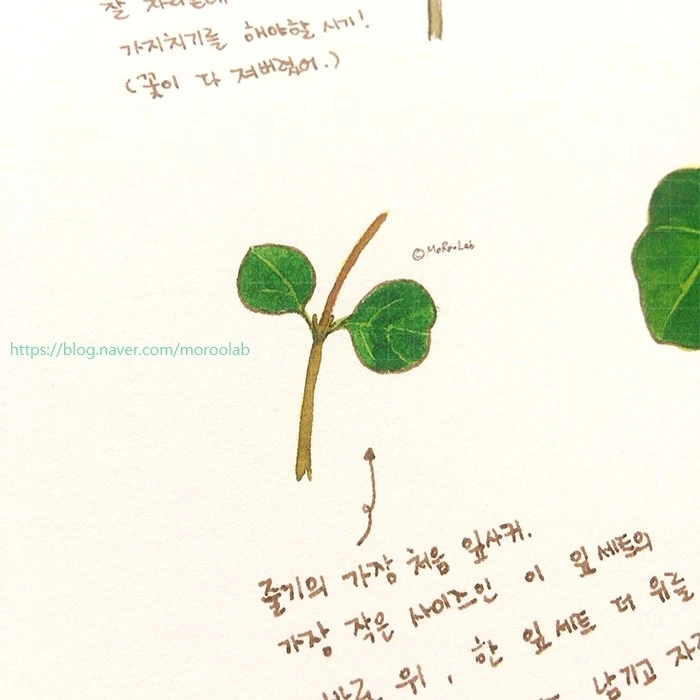 잘 자라는데
가지치기를 해야할 시기!
(꽃이 다 져버렸어.)
©MoRooLab
https://blog.naver.com/moroolab
줄기의 가장 처음 잎사귀.
가장 작은 사이즈인 이 잎세트의
바로 위, 한 잎세트 더 위를
남기고 자